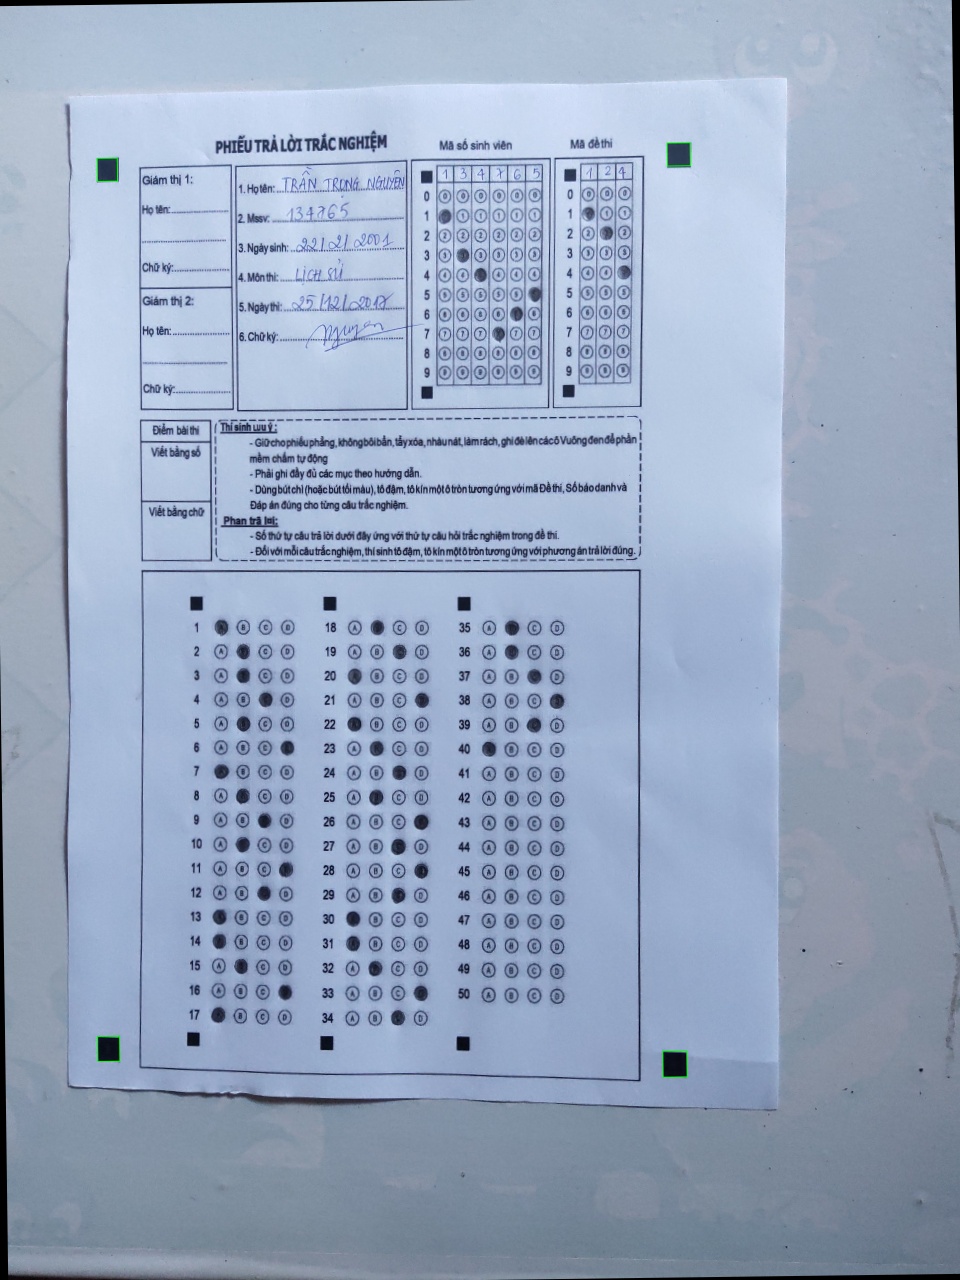 PHIẾU TRẢ LỜI TRẮC NGHIỆM
Mã số sinh viên
Mã đề thi
Giám thị 1:
Họ tên:
Chữ ký:
Giám thị 2:
Họ tên:
Chữ ký:
1. Họ tên: TRẦN TRỌNG NGUYÊN
2. Mssv: 134765
3. Ngày sinh: 22/2/2001
4. Môn thi: LỊCH SỬ
5. Ngày thi: 25/12/2017
6. Chữ ký: Nguyen
1 3 4 7 6 5
0 0 0 0 0 0 0
1 1 1 1 1 1
2 2 2 2 2 2 2
3 3 3 3 3 3
4 4 4 4 4 4
5 5 5 5 5 5
6 6 6 6 6 6
7 7 7 7 7 7
8 8 8 8 8 8 8
9 9 9 9 9 9 9
1 2 4
0 0 0 0
1 1 1
2 2 2
3 3 3 3
4 4 4
5 5 5 5
6 6 6 6
7 7 7 7
8 8 8 8
9 9 9 9
Điểm bài thi
Viết bằng số
Viết bằng chữ
Thí sinh lưu ý:
- Giữ cho phiếu phẳng, không bôi bẩn, tẩy xóa, nhàu nát, làm rách, ghi đè lên các ô Vuông đen để phần
mềm chấm tự động
- Phải ghi đầy đủ các mục theo hướng dẫn.
- Dùng bút chì (hoặc bút tối màu), tô đậm, tô kín một ô tròn tương ứng với mã Đề thi, Số báo danh và
Đáp án đúng cho từng câu trắc nghiệm.
Phan trả lơi:
- Số thứ tự câu trả lời dưới đây ứng với thứ tự câu hỏi trắc nghiệm trong đề thi.
- Đối với mỗi câu trắc nghiệm, thí sinh tô đậm, tô kín một ô tròn tương ứng với phương án trả lời đúng.
1 B C D
2 A C D
3 A C D
4 A B D
5 A C D
6 A B C
7 B C D
8 A C D
9 A B D
10 A C D
11 A B C
12 A B D
13 B C D
14 B C D
15 A C D
16 A B C
17 B C D
18 A C D
19 A B D
20 B C D
21 A B C
22 B C D
23 A C D
24 A B D
25 A C D
26 A B C
27 A B D
28 A B C
29 A B D
30 B C D
31 B C D
32 A C D
33 A B C
34 A B D
35 A C D
36 A C D
37 A B D
38 A B C
39 A B D
40 B C D
41 A B C D
42 A B C D
43 A B C D
44 A B C D
45 A B C D
46 A B C D
47 A B C D
48 A B C D
49 A B C D
50 A B C D